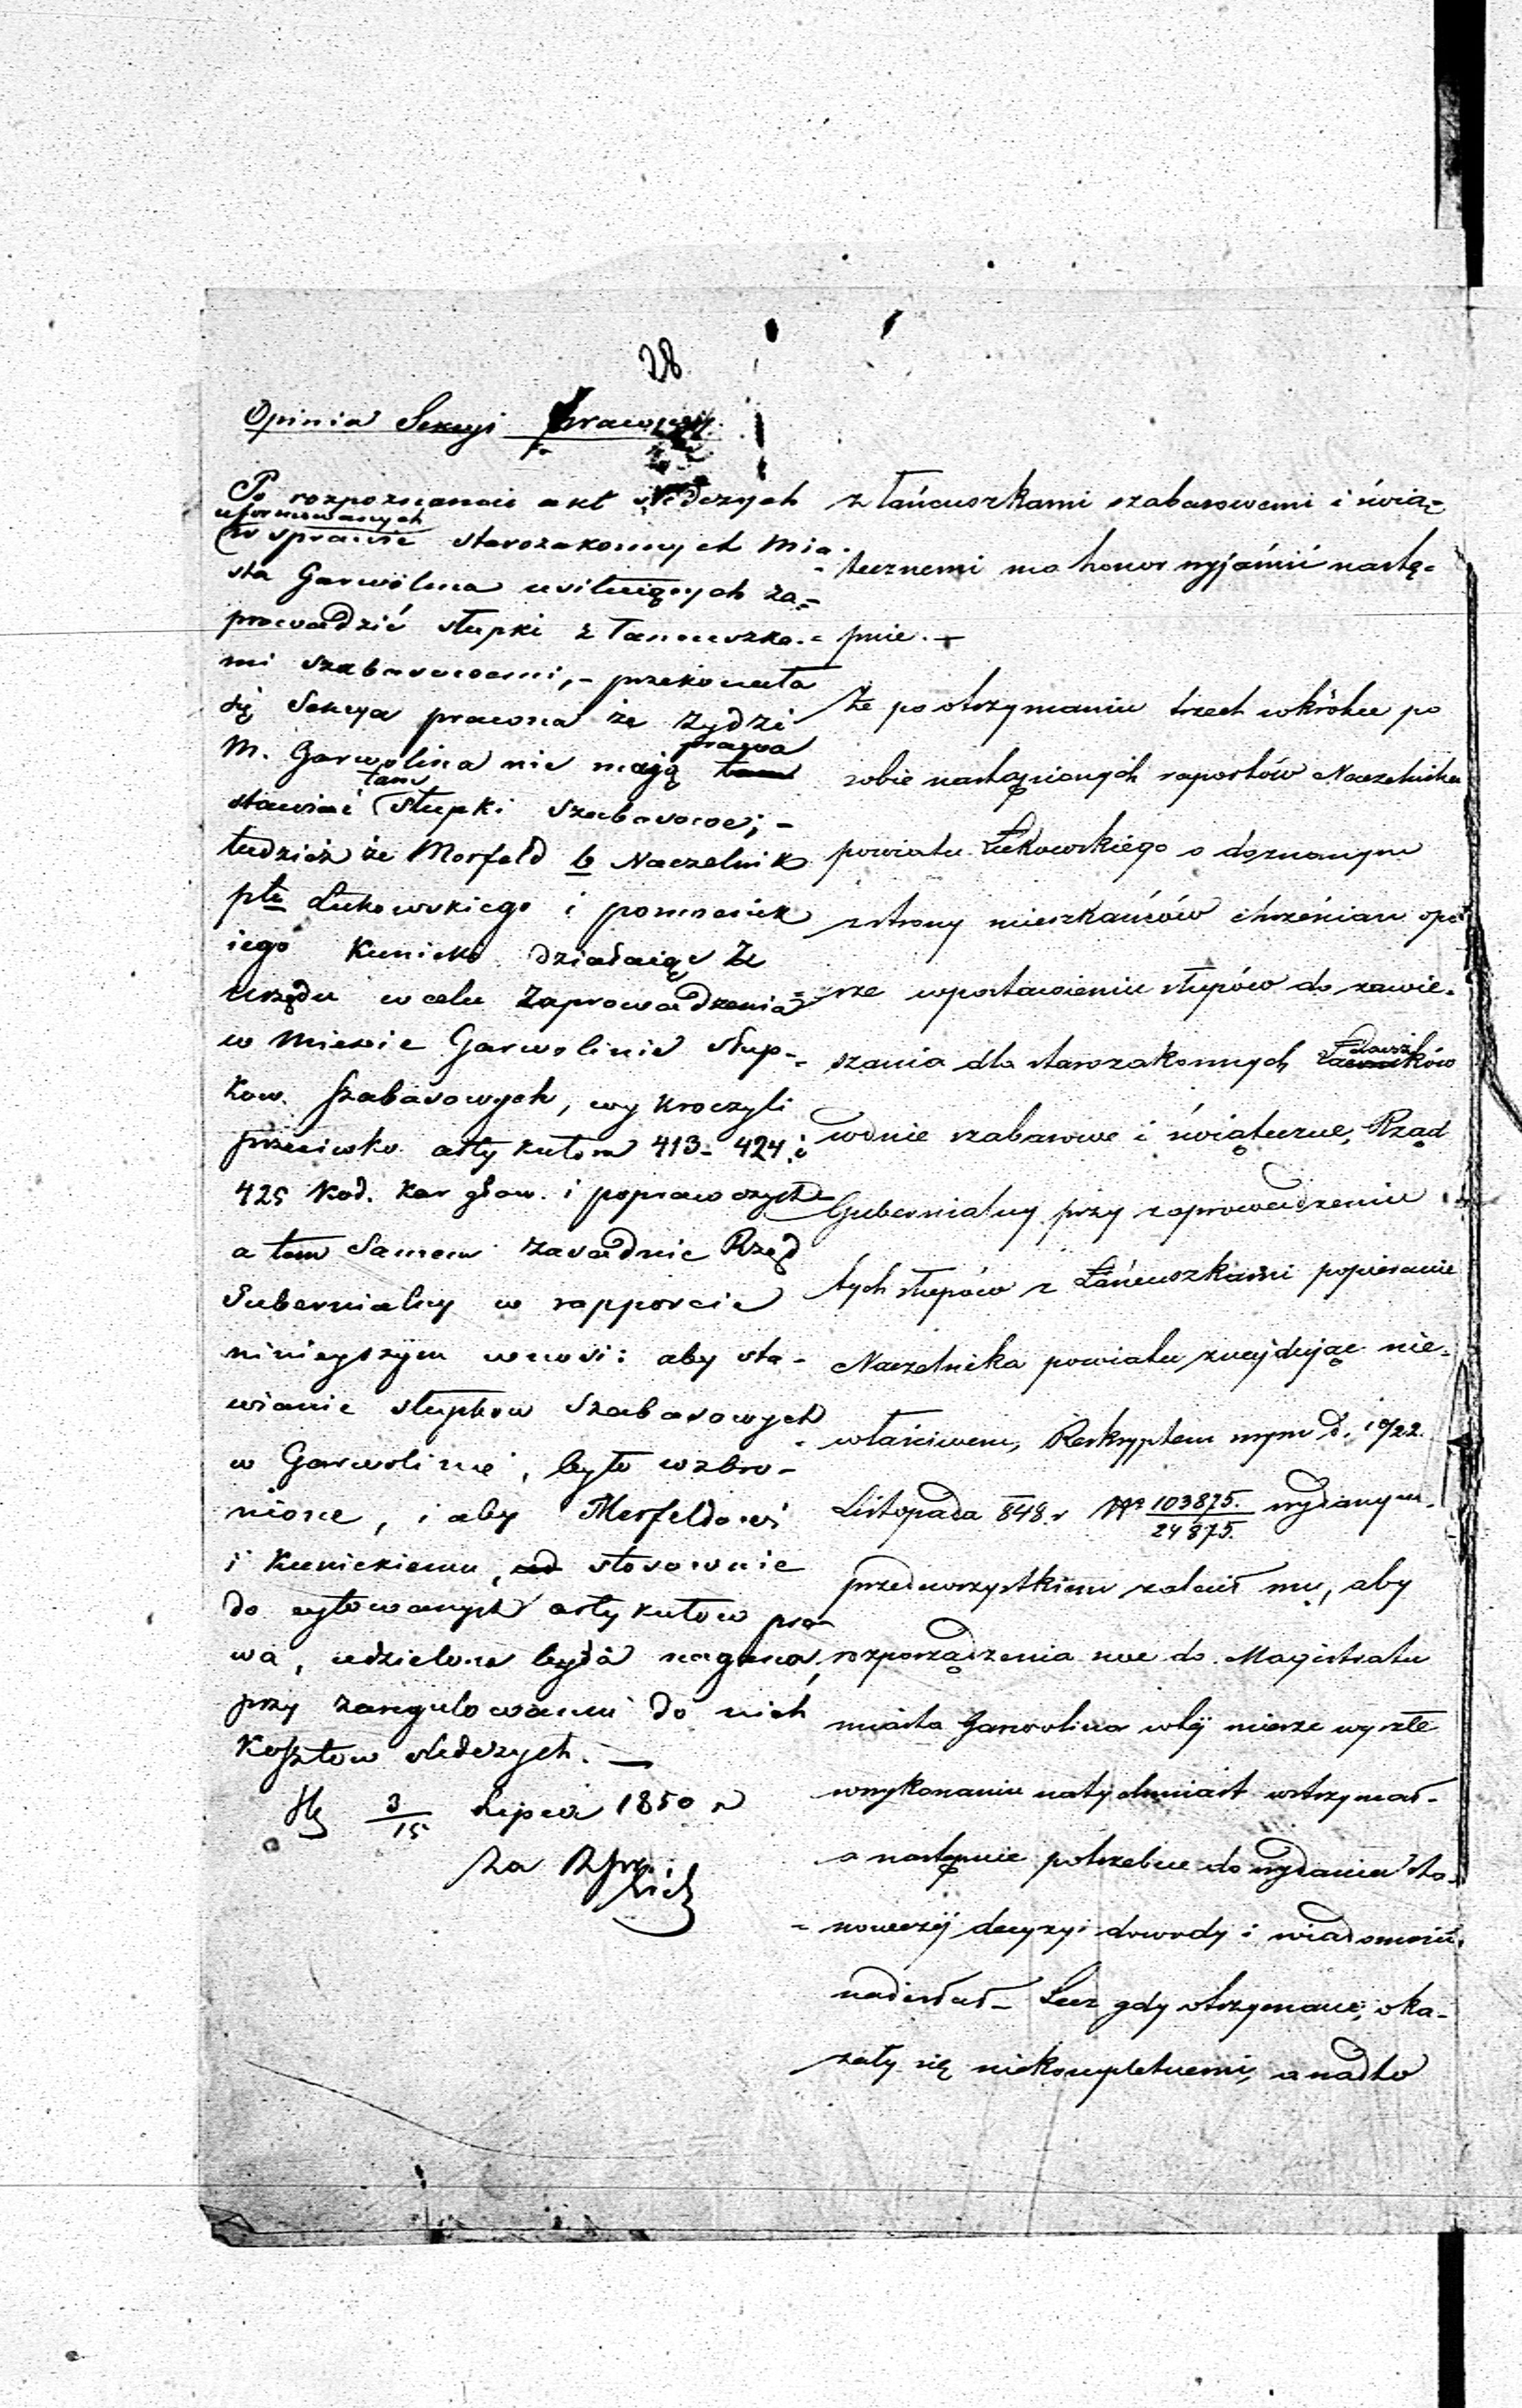 28
Opinia Sekcyi prawnej.
Po rozpoznaniu akt śledczych
uformowanych
w sprawie starozakonnych Mia-
sta Garwolina usiłuiących za-
prowadzić słupki z łancuszka-
mi szabasowemi, - przekonała
się Sekcya prawna że żydzi
prawa
M. Garwolina nie mają
tam
stawiać słupki szabasowe; -
tudzież że Morfeld b Naczelnik
ptu Łukowskiego i pomocnik
iego Kunicki działaiąc z
urzędu w celu zaprowadzenia
w Mieście Garwolinie słup-
kow szabasowych, wykroczyli
przeciwko artykułom 413- 424 i
425 Kod. kar głow. i poprawczych
a tem samem zasadnie Rząd
Gubernialny w rapporcie
niniejszym wnosi: aby sta-
wianie słupkow szabasowych
w Garwolinie, było wzbro-
nione, i aby Merfeldowi
i Kunickiemu, stosownie
do cytowanych artykułow pra-
wa, udzielona była nagana,
przy zaregulowaniu do nich
kosztow śledczych. —
3/15 Lipca 1850 r
za
z łańcuszkami szabasowemi i świą-
tecznemi ma honor wyjaśnić nastę-
pnie. -
Że po otrzymaniu trzech wkrótce po
sobie nastąpionych raportów Naczelnika
powiatu Łukowskiego o doznanym
z strony mieszkańców chrześcian opo-
rze w postawieniu słupów do zawie-
szania dla starozakonnych
w dnie szabasowe i świąteczne, Rząd
Gubernialny przy zaprowadzeniu
tych słupów z Łańcuszkami popieranie
Naczelnika powiatu znajdując nie-
właściwem, Reskryptem swym d. 10/22
Listopada 848 r No 103875./24875. wydanym
przedewszystkiem zalecił mu, aby
rozporządzenia swe do Magistratu
miasta Garwolina w téj mierze wyszłe
w wykonaniu natychmiast wstrzymał-
a następnie potrzebne do wydania sta-
nowczéj decyzyi dowody i wiadomości
nadesłał- Lecz gdy otrzymane, oka-
zały się niekompletnemi, a nadto